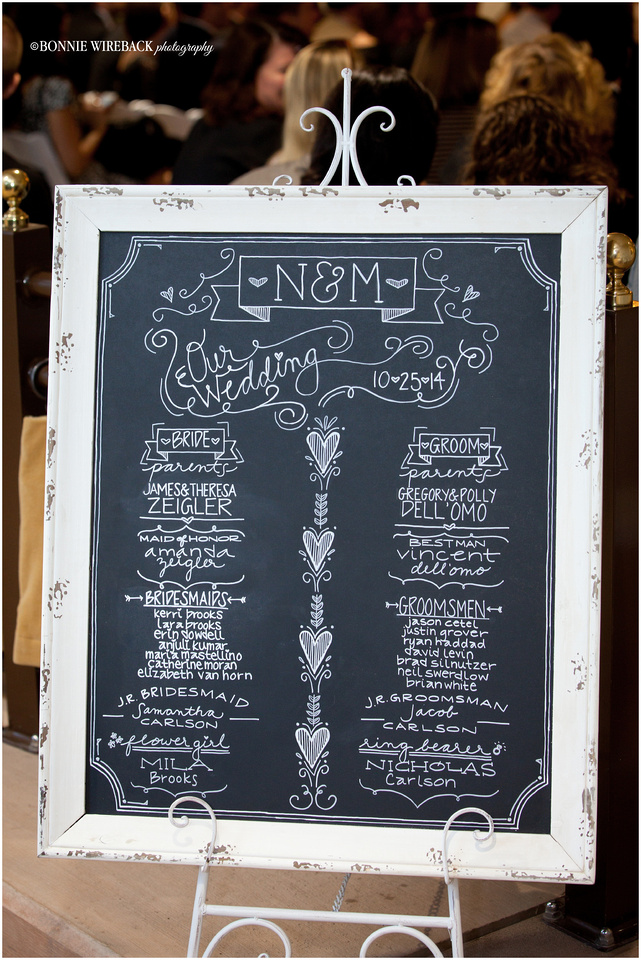 ©BONNIE WIREBACK photography
N&M
Our
Wedding
10·25·14
BRIDE
parents
JAMES & THERESA
ZEIGLER
MAID of HONOR
amanda
zeigler
BRIDESMAIDS
kerri brooks
lara brooks
erin dowdell
anjuli kumar
marla mastellino
catherine moran
elizabeth van horn
J.R. BRIDESMAID
Samantha
CARLSON
flower girl
MILA
Brooks
GROOM
parents
GREGORY & POLLY
DELL'OMO
BEST MAN
vincent
dell'omo
GROOMSMEN
jason cetel
justin grover
ryan haddad
david levin
brad silnutzer
neil swerdlow
brian white
J.R. GROOMSMAN
Jacob
CARLSON
ring bearer
NICHOLAS
Carlson